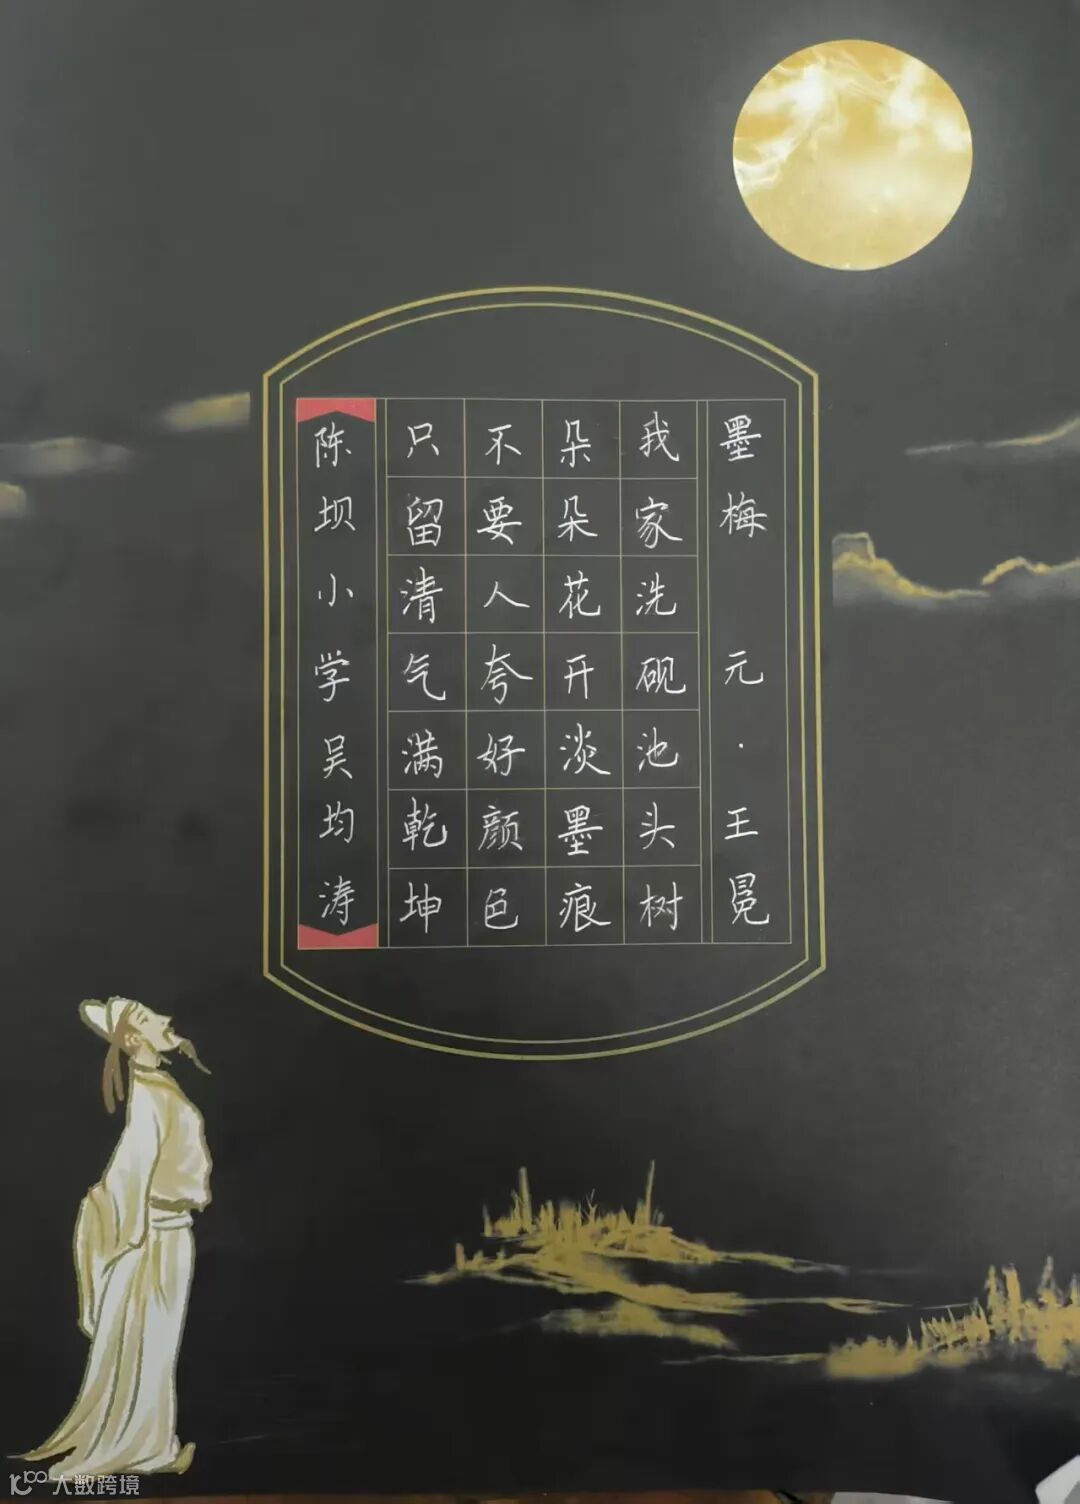 墨梅 元·王冕
我家洗砚池头树
朵朵花开淡墨痕
不要人夸好颜色
只留清气满乾坤
陈坝小学吴均涛
大数跨境